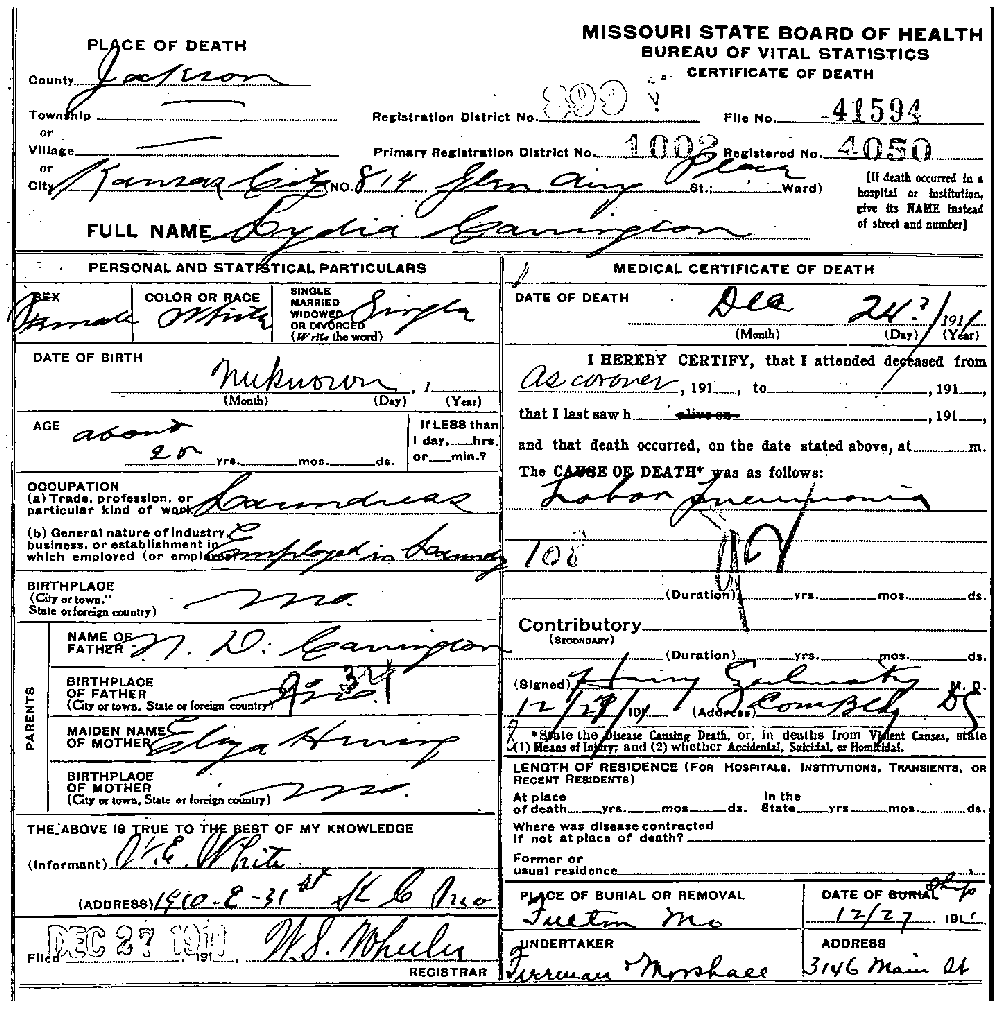 MISSOURI STATE BOARD OF HEALTH
BUREAU OF VITAL STATISTICS
CERTIFICATE OF DEATH
PLACE OF DEATH
County Jackson
Township
or
Village
or
City Kansas City NO. 814 Place St.; Ward)
Registration District No.
File No. 41594
Primary Registration District No. 1002 Registered No. 4050
[If death occurred in a
hospital or institution,
give its NAME instead
of street and number]
FULL NAME Lydia Carrington
PERSONAL AND STATISTICAL PARTICULARS
SEX Female
COLOR OR RACE White
SINGLE
MARRIED
WIDOWED
OR DIVORCED
(Write the word) Single
DATE OF BIRTH
Unknown, 1
(Month) (Day) (Year)
AGE about
20 yrs. mos. ds.
If LESS than
1 day, hrs.
or min.?
OCCUPATION
(a) Trade, profession, or
particular kind of work Laundress
(b) General nature of industry
business, or establishment in
which employed (or employer) Employed in Laundry
BIRTHPLACE
(City or town,
State or foreign country) Mo.
PARENTS
NAME OF
FATHER N. D. Carrington
BIRTHPLACE
OF FATHER
(City or town, State or foreign country) Mo.
MAIDEN NAME
OF MOTHER Eliza
BIRTHPLACE
OF MOTHER
(City or town, State or foreign country) Mo.
THE ABOVE IS TRUE TO THE BEST OF MY KNOWLEDGE
(Informant) White
(ADDRESS) 1910-E-31st K C Mo
Filed DEC 27 1911 191 W.S. Wheeler
REGISTRAR
MEDICAL CERTIFICATE OF DEATH
DATE OF DEATH
Dec 24 1911
(Month) (Day) (Year)
I HEREBY CERTIFY, that I attended deceased from
As coroner, 191 , to , 191
that I last saw h alive on , 191
and that death occurred, on the date stated above, at m.
The CAUSE OF DEATH* was as follows:
Lobar Pneumonia
108 92
(Duration) yrs. mos. ds.
Contributory
(SECONDARY)
(Duration) yrs. mos. ds.
(Signed) M. D.
12/27 191 (Address)
*State the Disease Causing Death, or, in deaths from Violent Causes, state
(1) Means of Injury; and (2) whether Accidental, Suicidal, or Homicidal.
LENGTH OF RESIDENCE (FOR HOSPITALS, INSTITUTIONS, TRANSIENTS, OR
RECENT RESIDENTS)
At place
of death yrs. mos. ds.
In the
State yrs. mos. ds.
Where was disease contracted
if not at place of death?
Former or
usual residence
PLACE OF BURIAL OR REMOVAL
Fulton Mo
DATE OF BURIAL Ship
12/27 1911
UNDERTAKER
Freeman & Marshall
ADDRESS
3146 Main St